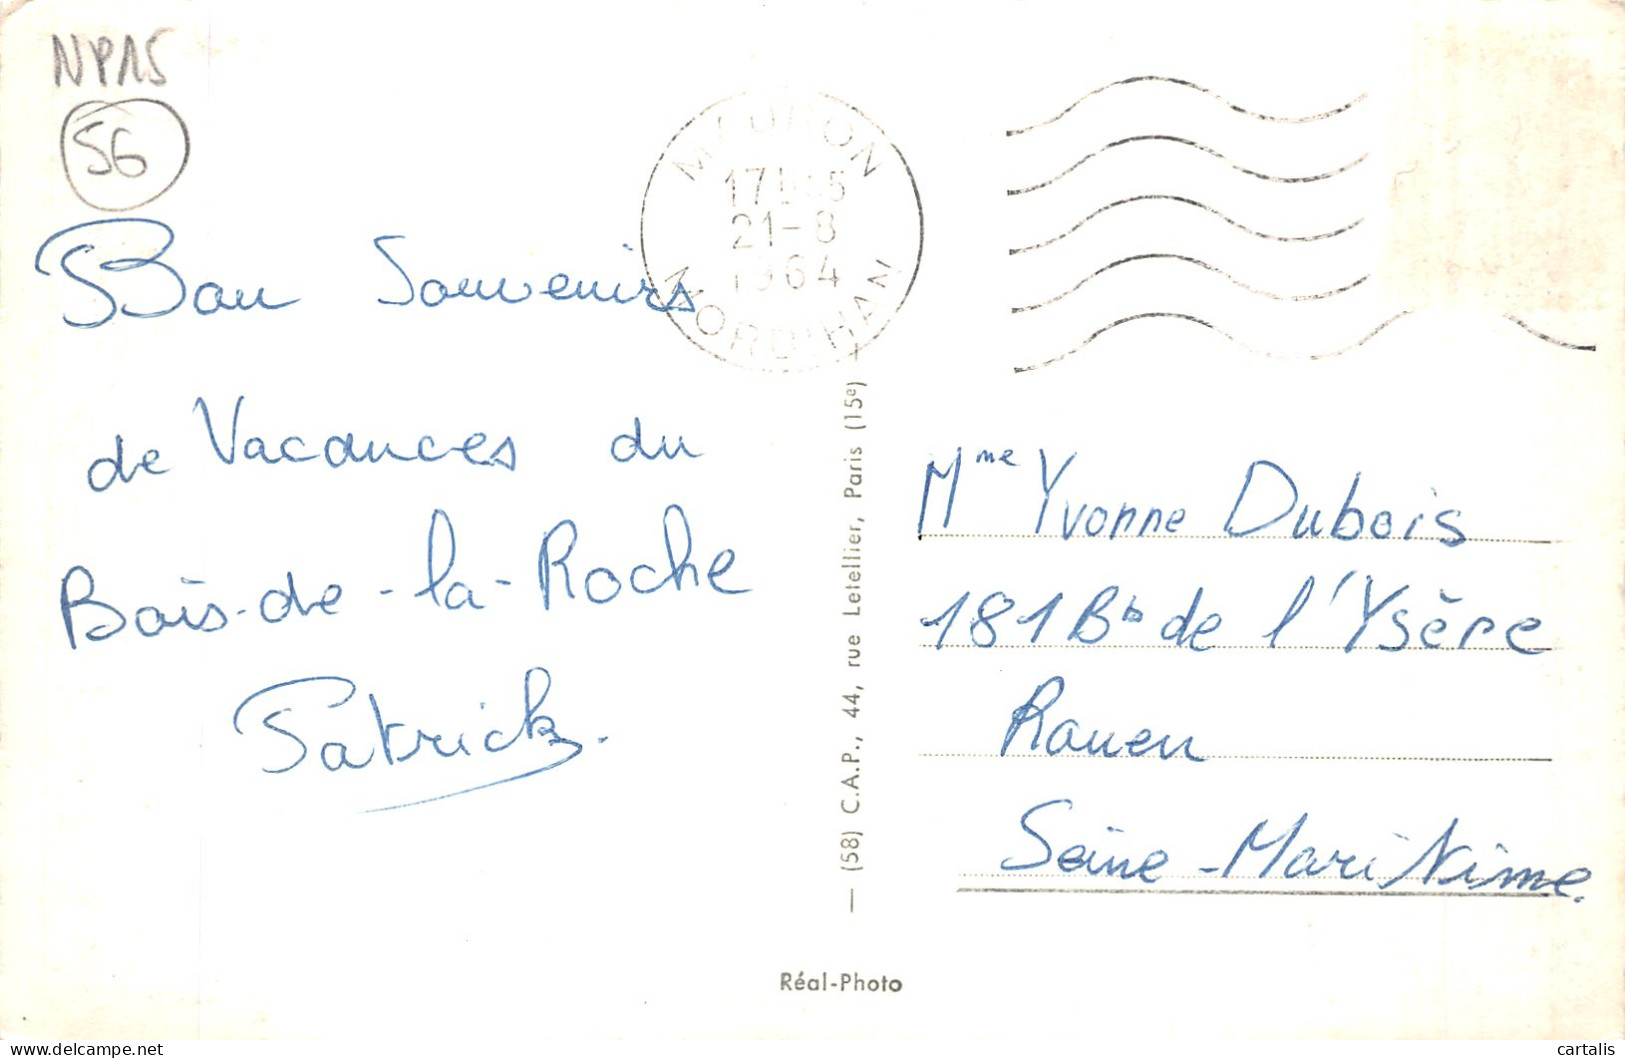 NPA5
56
MAURON
17H15
21-8
1964
MORBIHAN
Bon Souvenirs
de Vacances du
Bois-de-la-Roche
Patrick.
— (58) C.A.P., 44, rue Letellier, Paris (15e) —
Mme Yvonne Dubois
181 Bd de l'Ysère
Rouen
Seine-Maritime.
Réal-Photo
cartalis